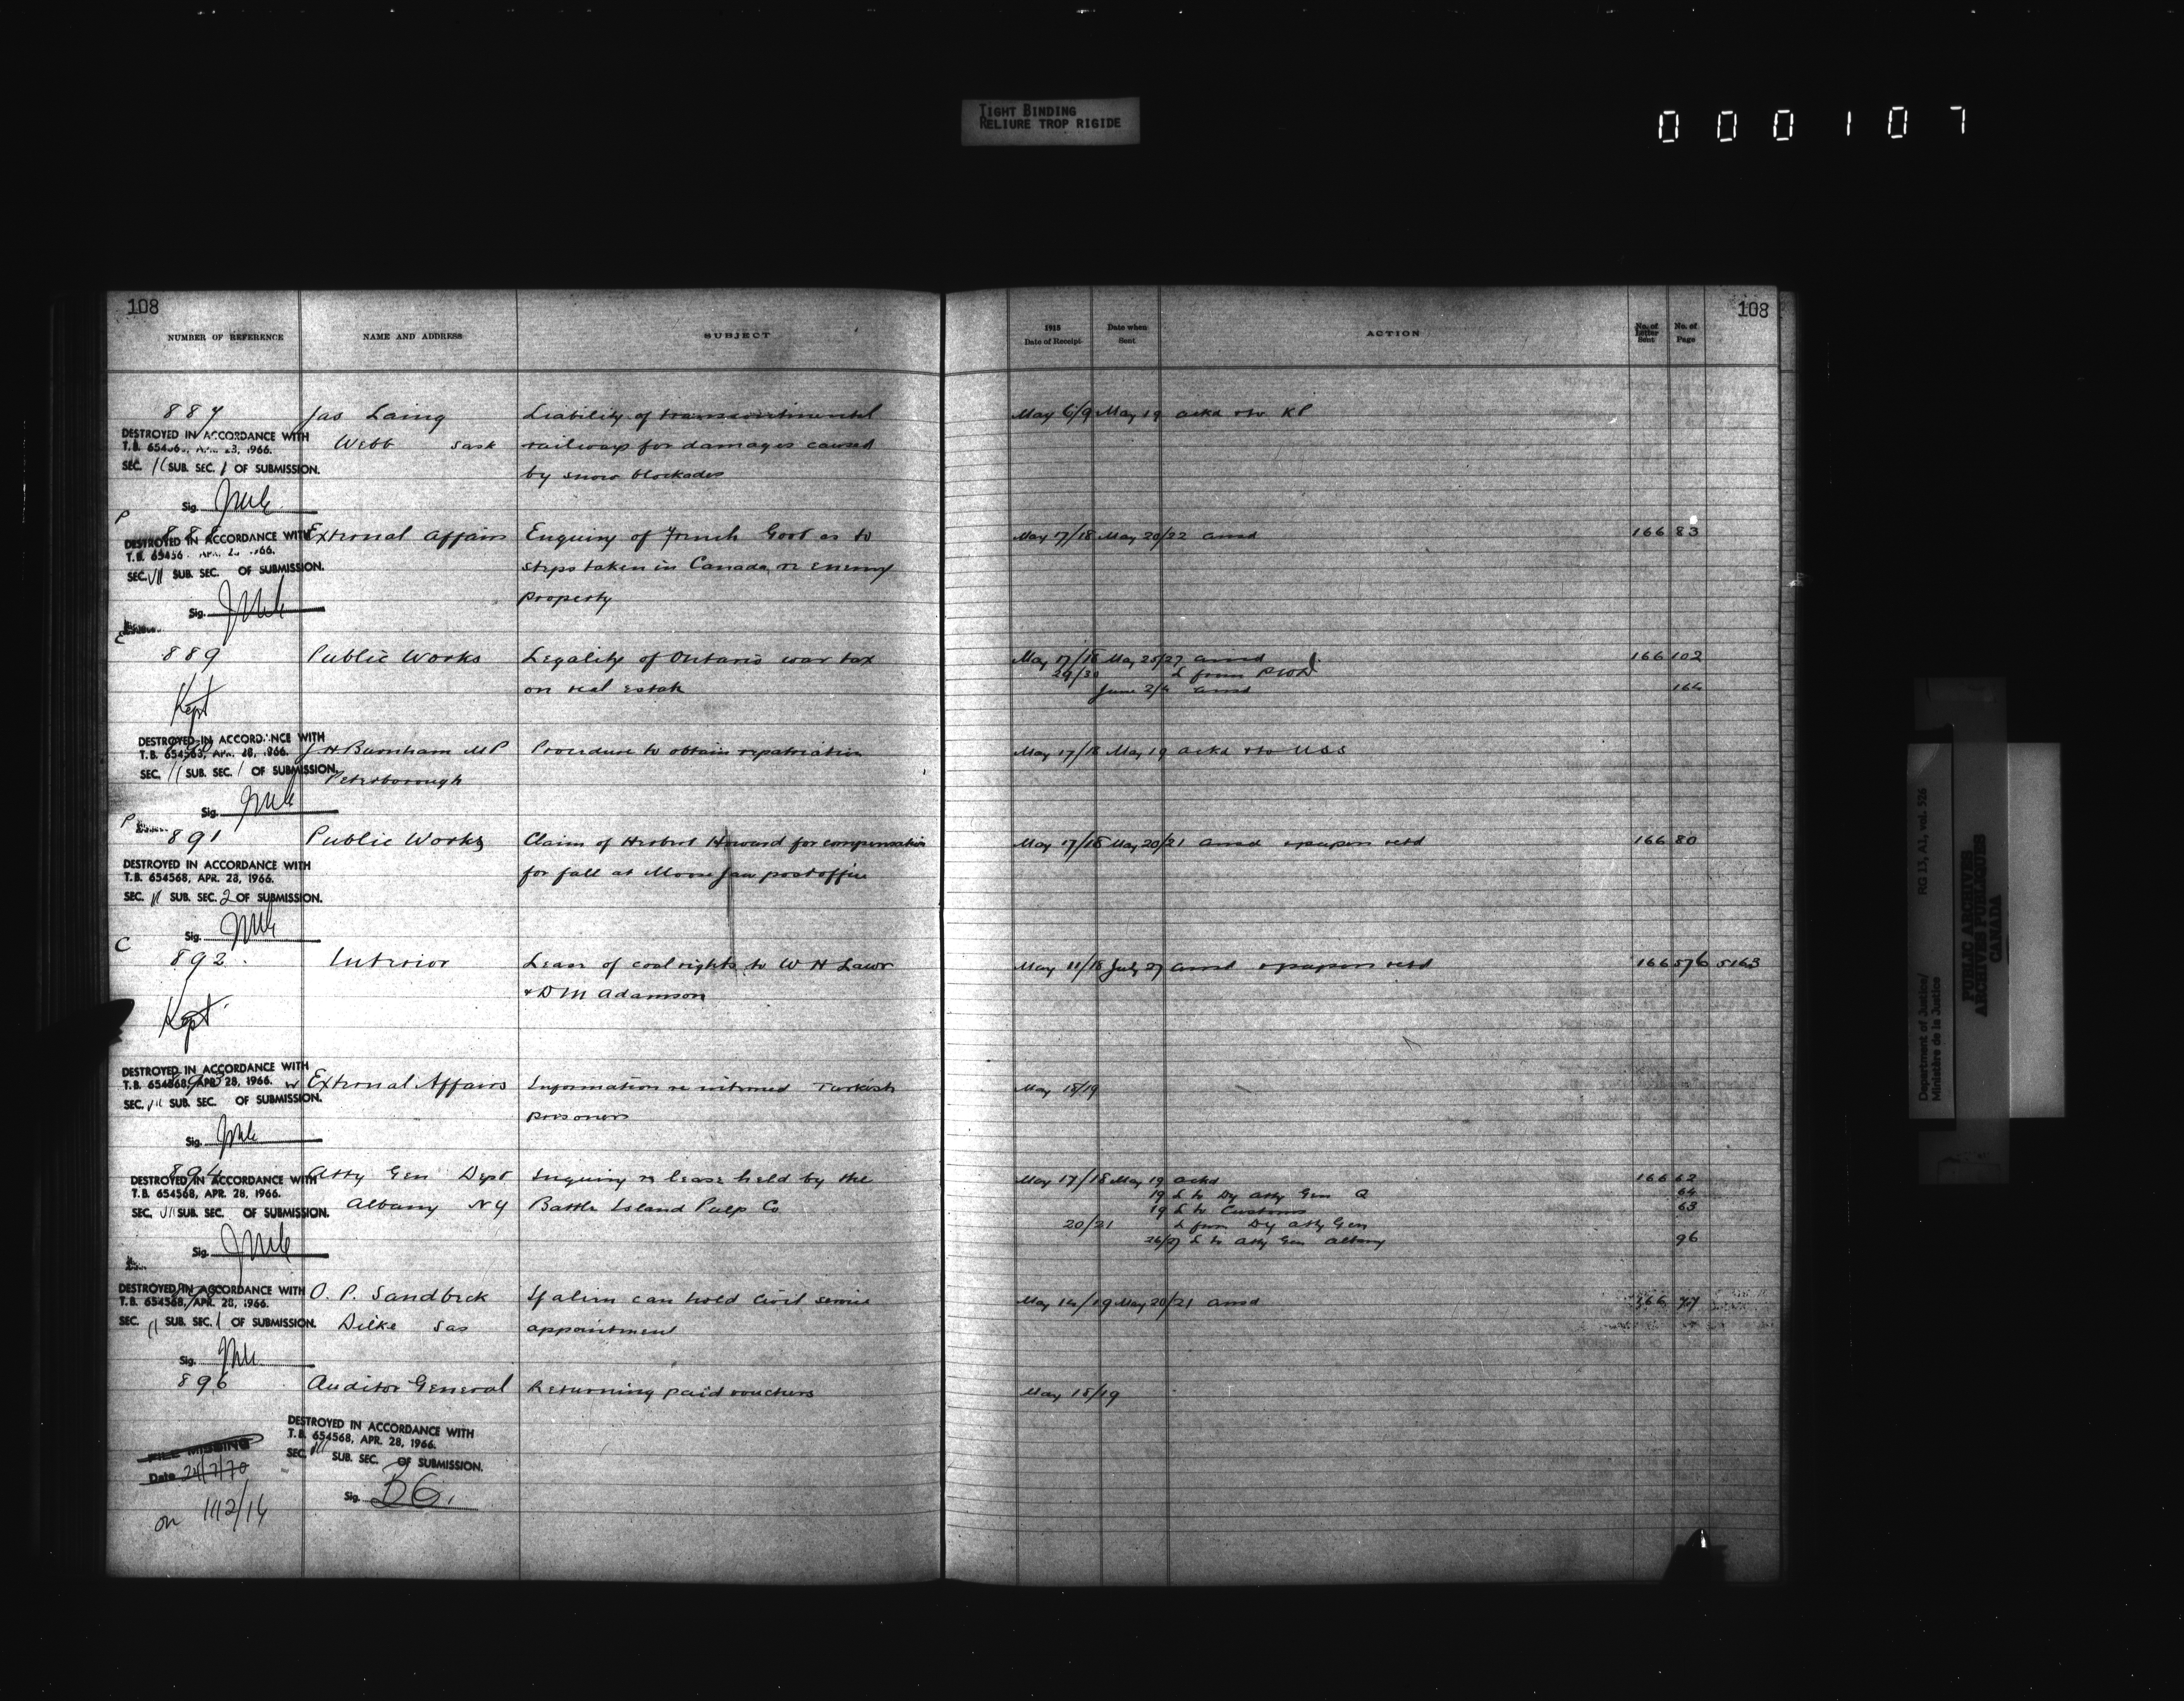 TIGHT BINDING
RELIURE TROP RIGIDE
000107
108
NUMBER OF REFERENCE
NAME AND ADDRESS
SUBJECT
1915
Date of Receipt
Date when
Sent
ACTION
No. of
Letter
Sent
No. of
Page
108
887 Jas Laing Liability of transcontinental May 6/9 May 19 ackd
DESTROYED IN ACCORDANCE WITH
Webb Sask railways for damages caused
SEC. 11 SUB. SEC. 1 OF SUBMISSION.
by snow blockades
Sig.
P
888 External Affairs Enquiry of French Govt as to May 17/18 May 20/22 ansd 166 83
DESTROYED IN ACCORDANCE WITH
steps taken in Canada re enemy
SEC. VII SUB. SEC. OF SUBMISSION.
property
Sig.
889 Public Works Legality of Ontario war tax May 17/18 May 25/27 ansd 166 102
29/30 L from PWD
on real estate June 2/4 ansd
Kept
DESTROYED IN ACCORDANCE WITH
J H Burnham MP Procedure to obtain repatriation May 17/18 May 19 ackd
T.B. 654568, APR. 28, 1966.
SEC. 11 SUB. SEC. 1 OF SUBMISSION.
Peterborough
Sig.
P
891 Public Works Claim of Herbert Howard for compensation May 17/18 May 20/21 ansd & papers retd 166 80
DESTROYED IN ACCORDANCE WITH
for fall at Moose Jaw post office
T.B. 654568, APR. 28, 1966.
SEC. 11 SUB. SEC. 2 OF SUBMISSION.
Sig.
C
892 Interior Lease of coal rights to W H Lawr July 27 ansd & papers retd 166 576 5163
& D M Adamson
Kept
DESTROYED IN ACCORDANCE WITH
T.B. 654568, APR. 28, 1966.
External Affairs Information re interned Turkish May 18/19
SEC. VII SUB. SEC. OF SUBMISSION.
prisoners
Sig.
894 Atty Gen Dept Enquiry re lease held by the May 17/18 May 19 ackd 166 62
DESTROYED IN ACCORDANCE WITH
T.B. 654568, APR. 28, 1966.
19 L to Dy Atty Gen Q 64
Albany NY Battle Island Pulp Co 19 L to Customs 63
SEC. VII SUB. SEC. OF SUBMISSION.
20/21 L from Dy Atty Gen
26/27 L to Atty Gen Albany 96
Sig.
DESTROYED IN ACCORDANCE WITH
O. P. Sandbeck If alien can hold civil service May 14/19 May 20/21 ansd 166 77
T.B. 654568, APR. 28, 1966.
SEC. 11 SUB. SEC. 1 OF SUBMISSION.
Dilke Sas appointment
Sig.
896 Auditor General Returning paid vouchers May 18/19
DESTROYED IN ACCORDANCE WITH
T.B. 654568, APR. 28, 1966.
SEC. VII SUB. SEC. OF SUBMISSION.
FILE MISSING
Date 24/7/70
Sig. DG.
on 1112/14
Department of Justice/
Ministère de la Justice
RG 13, A1, vol. 526
PUBLIC ARCHIVES
ARCHIVES PUBLIQUES
CANADA